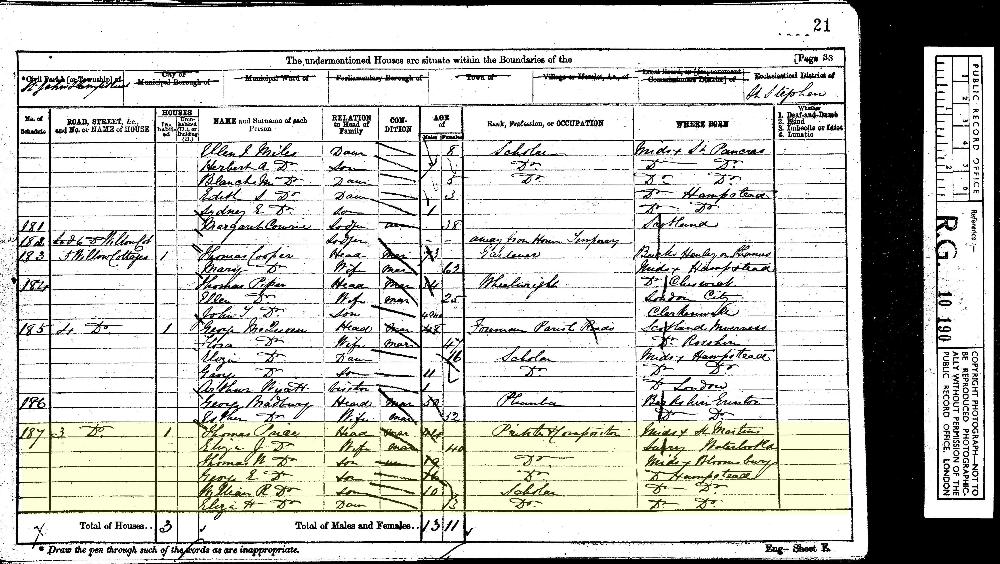 21
The undermentioned Houses are situate within the Boundaries of the [Page 33
Civil Parish [or Township] of City or Municipal Borough of Municipal Ward of Parliamentary Borough of Town of Village or Hamlet, &c., of Local Board, or [Improvement Commissioners District] of Ecclesiastical District of
St Stephen
No. of Schedule ROAD, STREET, &c., and No. or NAME of HOUSE HOUSES Inhabited Uninhabited (U.), or Building (B.) NAME and Surname of each Person RELATION to Head of Family CONDITION AGE of Males Females Rank, Profession, or OCCUPATION WHERE BORN Whether 1. Deaf-and-Dumb 2. Blind 3. Imbecile or Idiot 4. Lunatic
Ellen J. Miles Daur 8 Scholar Midsx St Pancras
Herbert A. Do son 7 Do Do Do
Blanche Do Daur 5 Do Do Do
Edith S Do Daur 3 Do Hampstead
Sydney E. Do son 1 Do Do
181 Margaret Lodger 38 Scotland
182 Lodger away from Home Temporary
183 5 Willow Cottages 1 Thomas Cooper Head mar 73 Gardener Henley on Thames
Mary Do Wife mar 62 Midsx Hampstead
184 Thomas Piper Head mar Wheelwright Do Chiswick
Ellen Do Wife mar 25 London City
John T. Do son Clerkenwell
185 4 Do 1 George Head mar 48 Foreman Parish Roads Scotland Inverness
Do Wife mar 47 Do
Eliza Do Daur 16 Scholar Midsx Hampstead
Do son 11 Do Do Do
Arthur Wyatt visitor 1 Do London
186 George Head mar Plumber Berkshire
Esther Do Wife mar 52 Do Do
187 3 Do 1 Thomas Head mar Printer Compositor Midsx St Martins
Eliza J. Do Wife mar 40 Surrey Waterloo Rd
Thomas W Do son 19 Do Midsx Bloomsbury
George E. Do son 16 Do Do Hampstead
William R Do son 10 Scholar Do Do
Eliza H Do Daur 13 Do Do Do
Total of Houses.. 3 Total of Males and Females.. 13 11
* Draw the pen through such of the words as are inappropriate. Eng—Sheet E.
PUBLIC RECORD OFFICE
1 2 3 4 5 6
Reference :—
R.G. 10 190
COPYRIGHT PHOTOGRAPH—NOT TO BE REPRODUCED PHOTOGRAPHICALLY WITHOUT PERMISSION OF THE PUBLIC RECORD OFFICE, LONDON